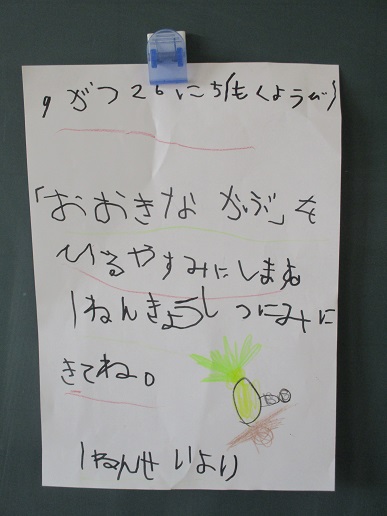 9がつ26にち(もくようび)
「おおきな かぶ」を
ひるやすみにします
1ねんきょうしつにみに
きてね。
1ねんせいより